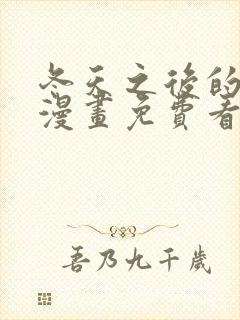 冬天之後的
漫畫免費看
吾乃九千歲